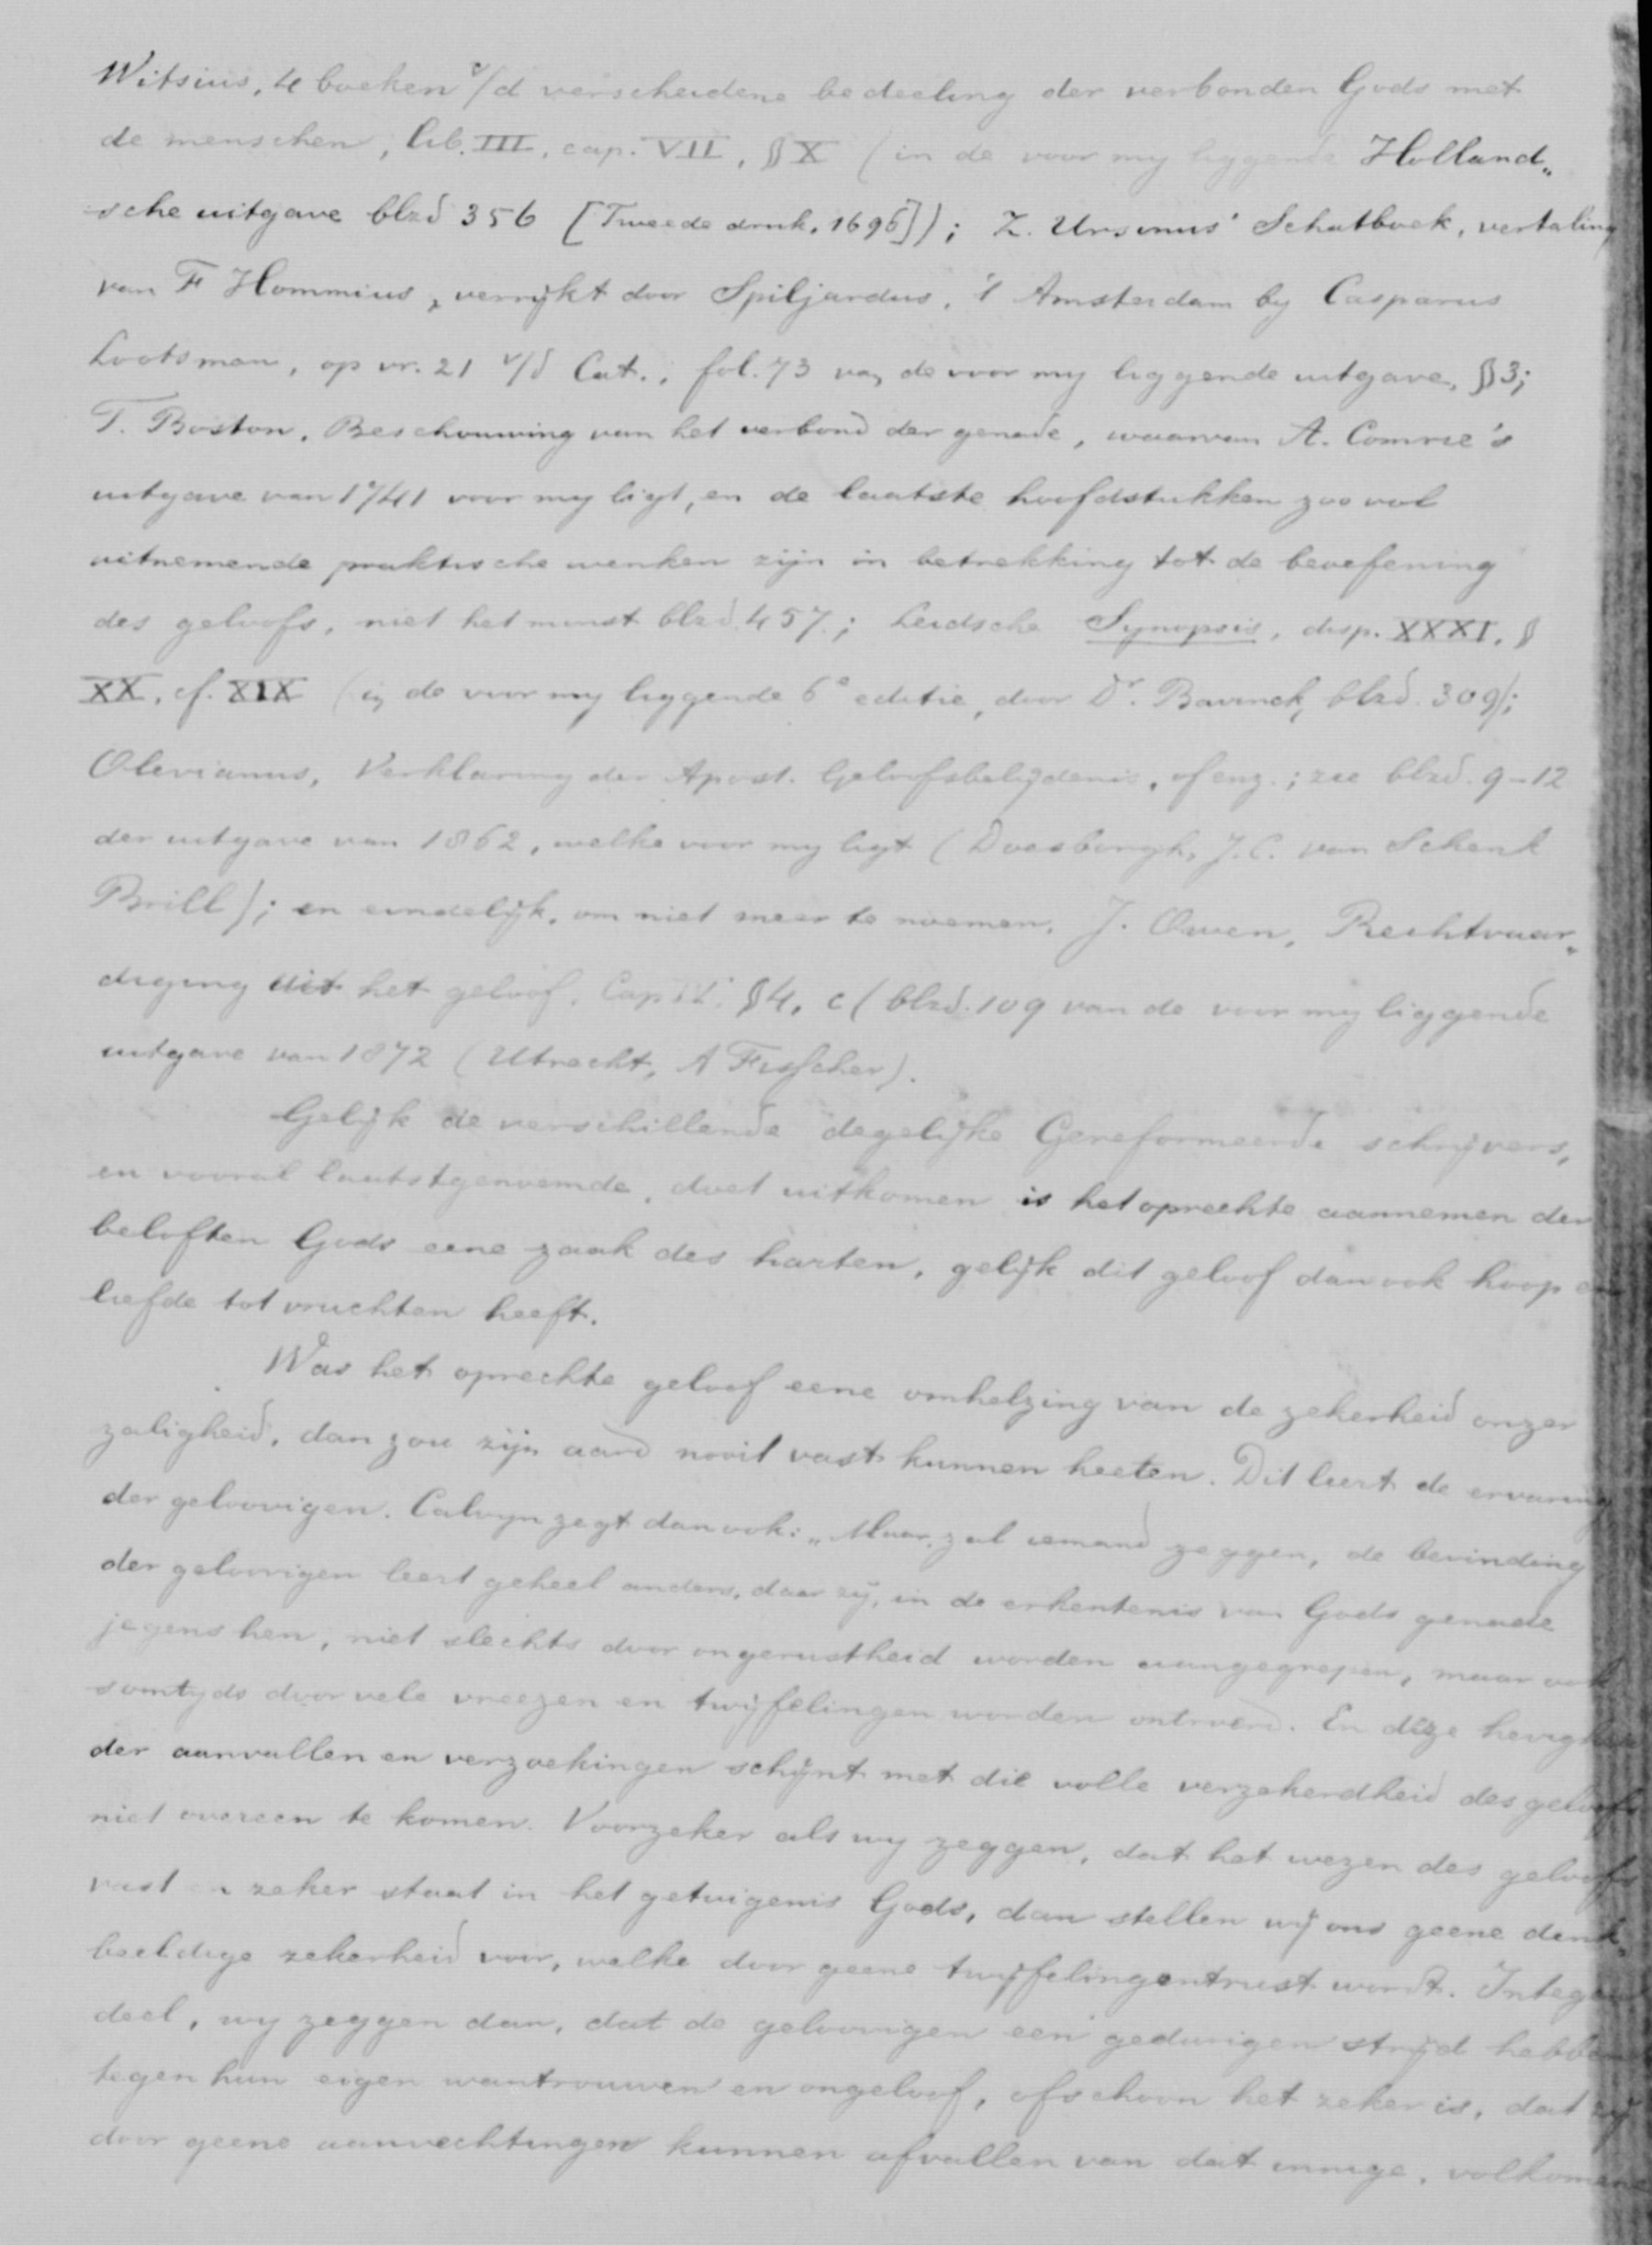 Witsius, 4 boeken v/d verscheidene bedeeling der verbonden Gods met
de menschen, lib. III, cap. VII, § X (in de voor my liggende Holland„
sche uitgave blzd 356 [Tweede druk, 1696]); Z. Ursinus' Schatboek, vertaling
van F Hommius, verrijkt door Spiljardus, 't Amsterdam by Casparus
Lootsman, op vr. 21 v/d Cat., fol. 73 van de voor my liggende uitgave, § 3;
T. Boston, Beschouwing van het verbond der genade, waarvan A. Comrie's
uitgave van 1741 voor my ligt, en de laatste hoofdstukken zoo vol
uitnemende praktische wenken zijn in betrekking tot de beoefening
des geloofs, niet het minst blzd. 457; Leidsche Synopsis, disp. XXXI, §
XX, cf. XIX (in de voor my liggende 6e editie, door Dr. Bavinck, blzd. 309);
Olevianus, Verklaring der Apost. Geloofsbelijdenis, of enz.; zie blzd. 9-12
der uitgave van 1862, welke voor my ligt (Doesborgh, J.C. van Schenk
Brill); en eindelijk, om niet meer te noemen, J. Owen, Rechtvaar„
diging uit het geloof, Cap. § 4, c (blzd. 109 van de voor my liggende
uitgave van 1872 (Utrecht, A Fisscher).
Gelijk de verschillende degelijke Gereformeerde schrijvers,
en vooral laatstgenoemde, doet uitkomen is het oprechte aannemen der
beloften Gods eene zaak des harten, gelijk dit geloof dan ook hoop en
liefde tot vruchten heeft.
Was het oprechte geloof eene omhelzing van de zekerheid onzer
zaligheid, dan zou zijn aard nooit vast kunnen heeten. Dit leert de ervaring
der geloovigen. Calvyn zegt dan ook: „Maar, zal iemand zeggen, de bevinding
der geloovigen leert geheel anders, daar zij, in de erkentenis van Gods genade
jegens hen, niet slechts door ongerustheid worden aangegrepen, maar ook
somtyds door vele vreezen en twijfelingen worden ontroerd. En deze hevigheid
der aanvallen en verzoekingen schijnt met die volle verzekerdheid des geloofs
niet overeen te komen. Voorzeker als wy zeggen, dat het wezen des geloofs
vast en zeker staat in het getuigenis Gods, dan stellen wij ons geene denk„
beeldige zekerheid voor, welke door geene twijfeling ontrust wordt. Integen
deel, wy zeggen dan, dat de geloovigen een gedurigen strijd hebben
tegen hun eigen wantrouwen en ongeloof, ofschoon het zeker is, dat zij
door geene aanvechtingen kunnen afvallen van dat innige, volkomen